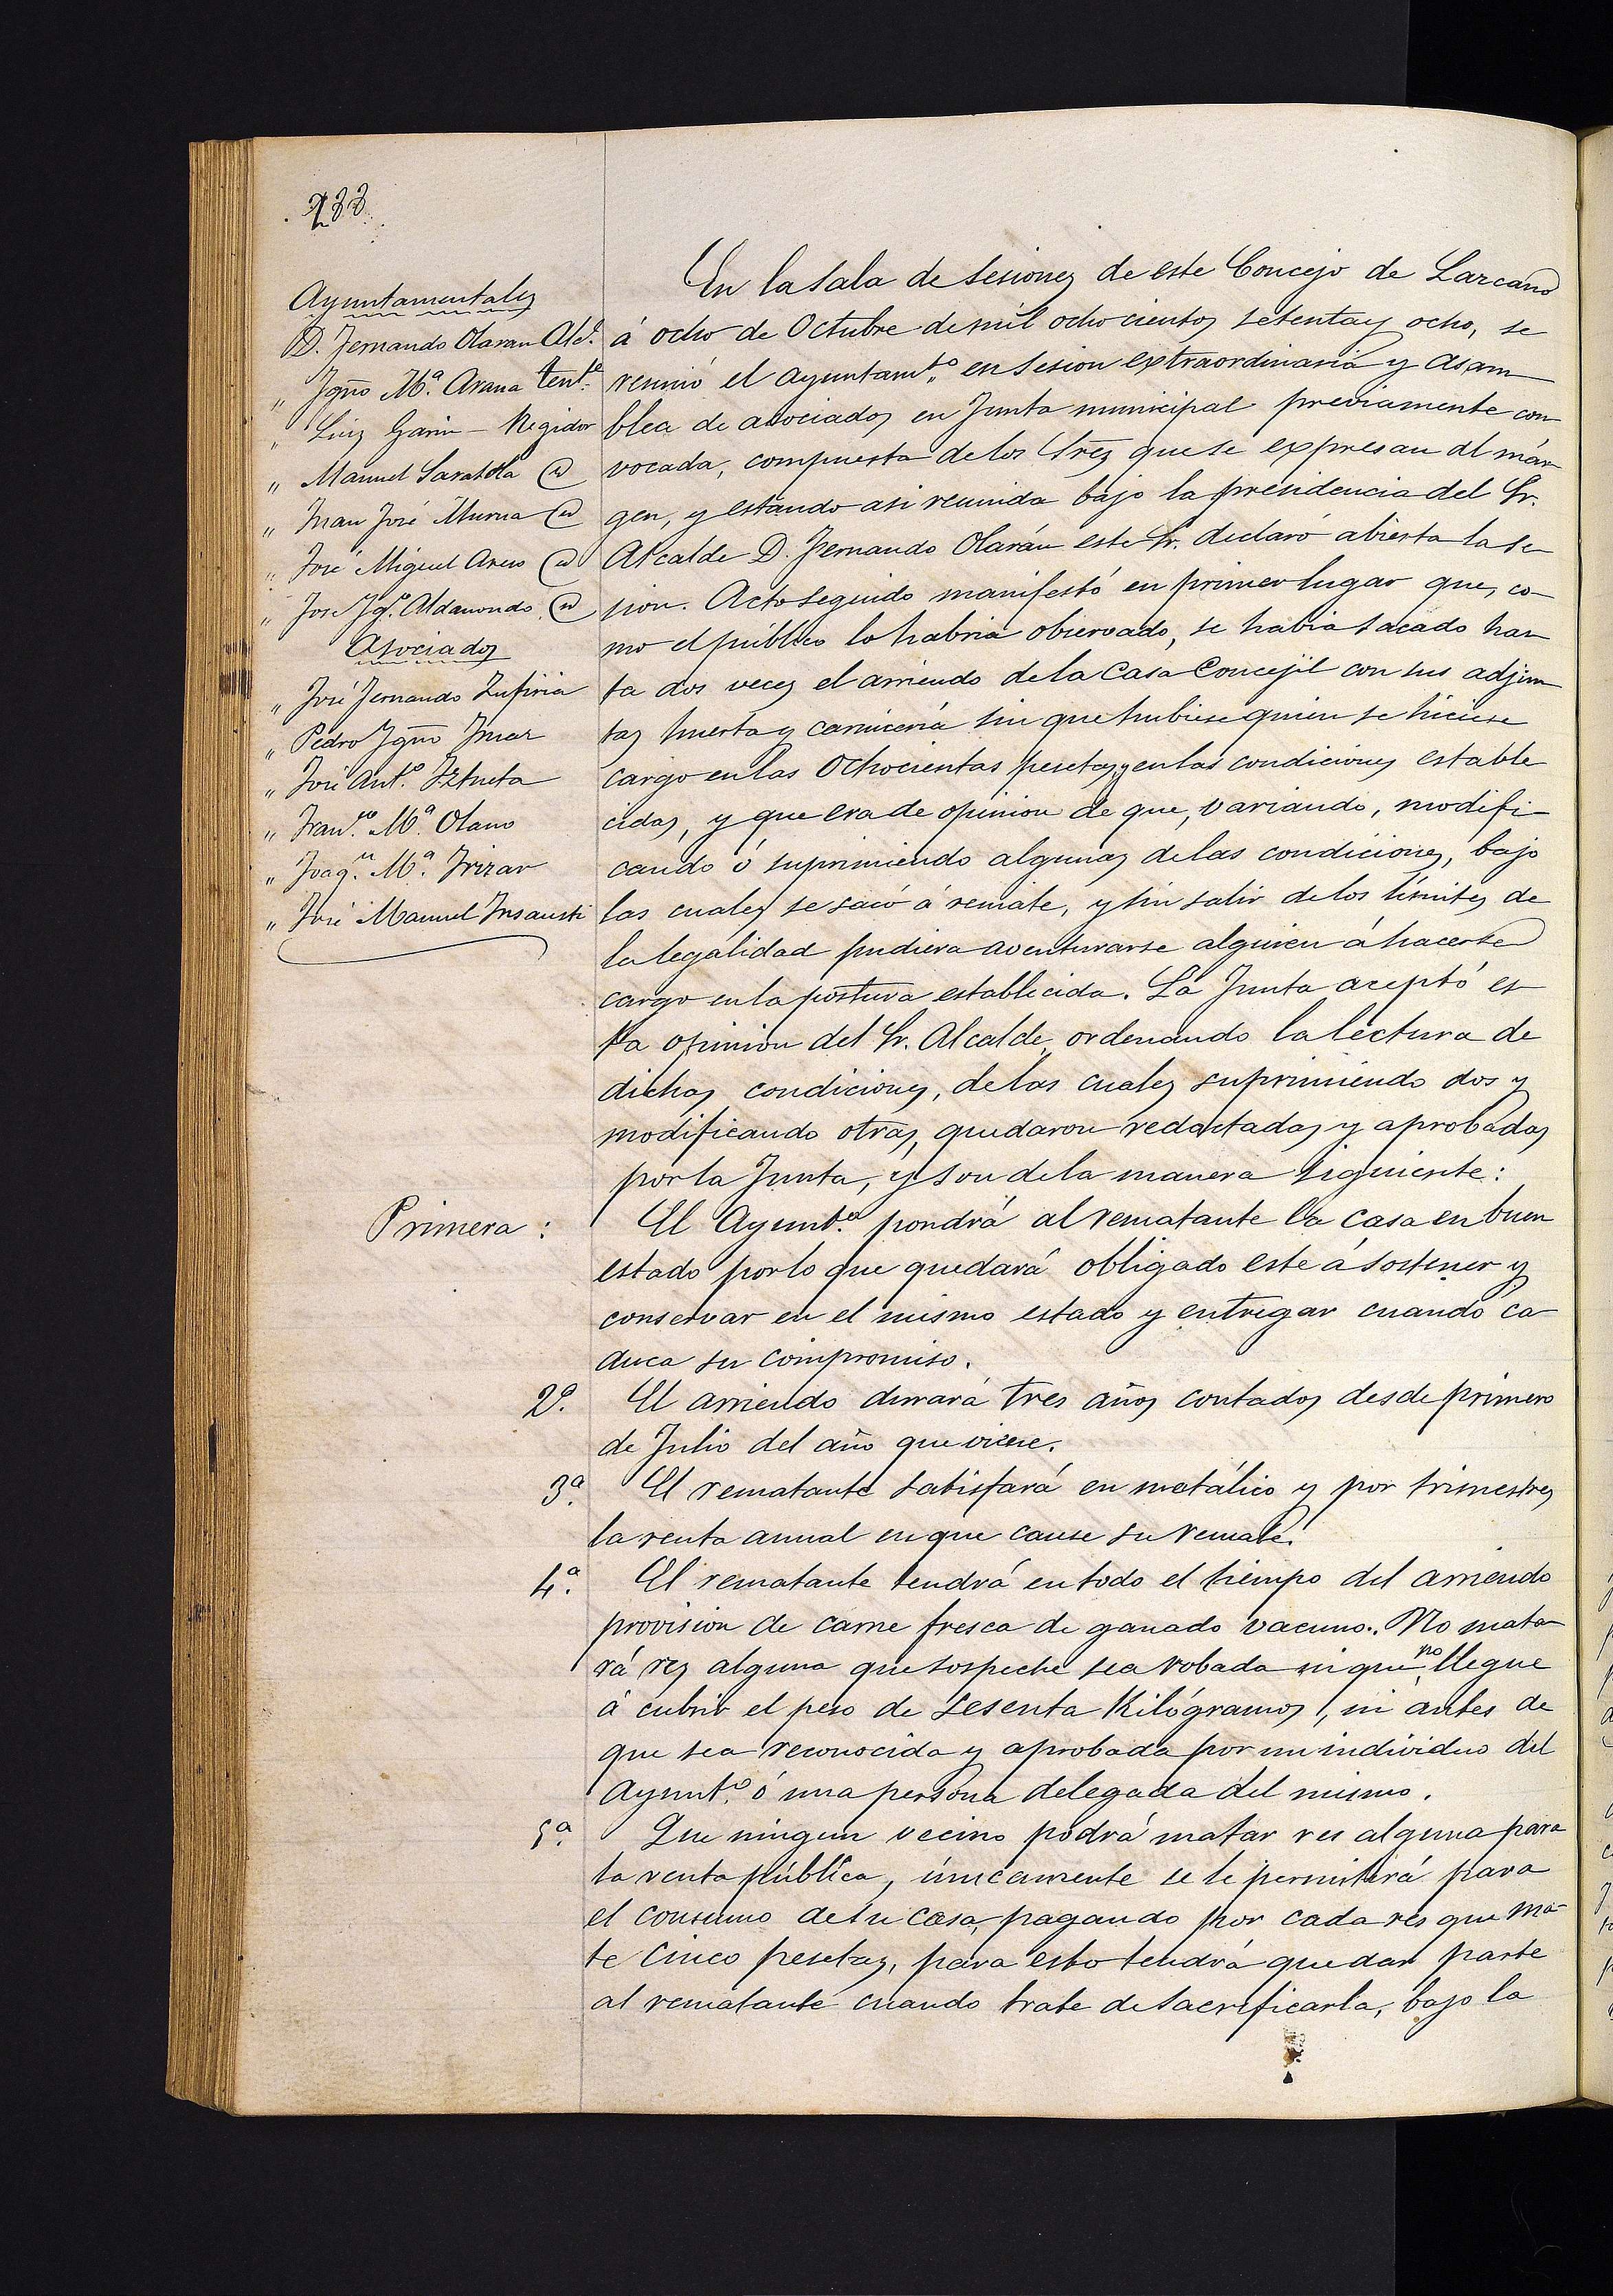 233
Ayuntamentales
D. Fernando Olaran Alc.e
" Ygno M.a Arana tent.e
" Luis Garin - Regidor
" Manuel Sarasola @
" Juan José Murua @
" José Miguel @
" Jose Yg.o Aldanondo @
Asociados
" José Fernando Zufiria
" Pedro Ygno
" José Ant.o Iztueta
" Fran.co M.a Olano
" Joaq.n M.a Irizar
" José Manuel Insausti
En la Sala de Sesiones de este Concejo de Lazcano
á ocho de Octubre de mil ochocientos setenta y ocho, se
reunió el Ayuntam.to en Sesion extraordinaria y asam
blea de asociados en Junta municipal previamente con
vocada, compuesta de los Sres que se expresan al már
gen, y estando asi reunida bajo la presidencia del Sr.
Alcalde D. Fernando Olarán este Sr. declaró abierta la se
sion. Acto seguido manifestó en primer lugar que, co-
mo el público lo habria observado, se habia sacado has
ta dos veces el arriendo de la Casa Concejil con sus adjun
tas huerta y carniceria sin que hubiese quien se hiciese
cargo en las Ochocientas pesetas y en las condiciones estable
cidas, y que era de opinion de que, variando, modifi-
cando ó suprimiendo algunas de las condiciones, bajo
las cuales se sacó á remate, y sin salir de los límites de
la legalidad pudiera aventurarse alguien á hacerse
cargo en la postura establecida. La Junta aceptó es
ta opinion del Sr. Alcalde, ordenando la lectura de
dichas condiciones, de las cuales suprimiendo dos y
modificando otras, quedaron redactadas y aprobadas
por la Junta, y son de la manera siguiente:
Primera: El Ayunt.o pondrá al rematante la casa en buen
estado por lo que quedará obligado este á sostener y
conservar en el mismo estado y entregar cuando ca
duca su compromiso.
2.a El arriendo durará tres años contados desde primero
de Julio del año que viene.
3.a El rematante satisfará en metálico y por trimestres
la renta anual en que cause su remate.
4.a El rematante tendrá en todo el tiempo del arriendo
provision de carne fresca de ganado vacuno. No mata
rá res alguna que sospeche sea robada ni que no llegue
á cubrir el peso de sesenta Kilógramos, ni antes de
que sea reconocida y aprobada por un individuo del
Ayunt.o ó una persona delegada del mismo.
5.a Que ningun vecino podrá matar res alguna para
la venta pública, únicamente se le permitirá para
el consumo de su casa, pagando por cada res que ma-
te cinco pesetas, para esto tendrá que dar parte
al rematante cuando trate de sacrificarla, bajo la